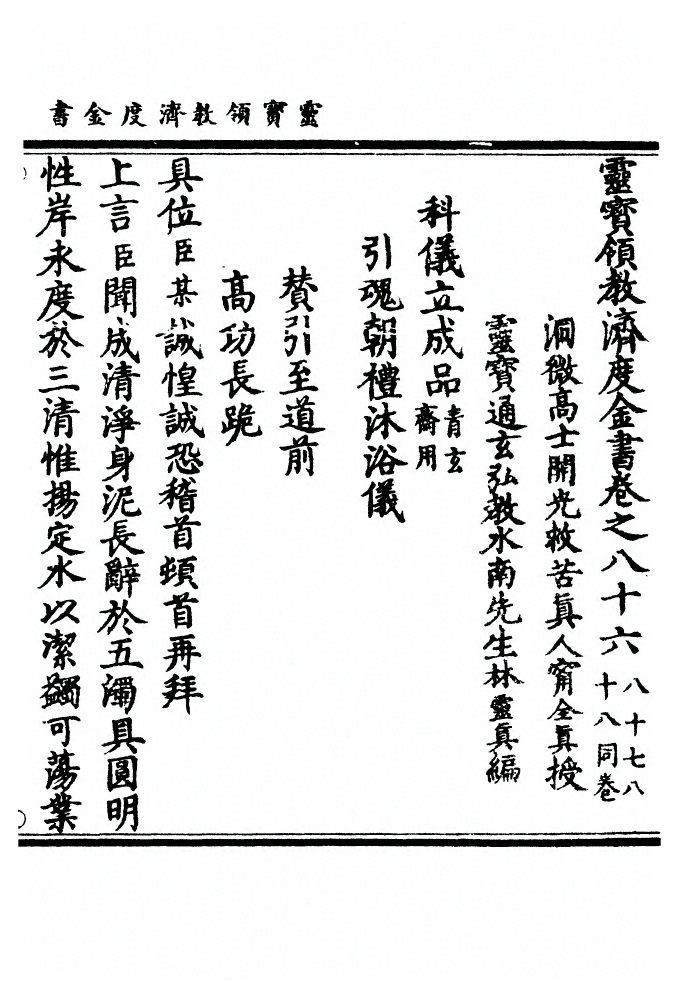 靈寶領教濟度金書
靈寶領教濟度金書卷之八十六八十七八十八同卷
洞微高士開光救苦真人甯全真授
靈寶通玄弘教水南先生林靈真編
科儀立成品青玄齋用
引魂朝禮沐浴儀
贊引至道前
高功長跪
具位臣某誠惶誠恐稽首頓首再拜
上言臣聞成清淨身泥長辭於五濁具圓明
性岸永度於三清惟揚定水以潔蠲可蕩業